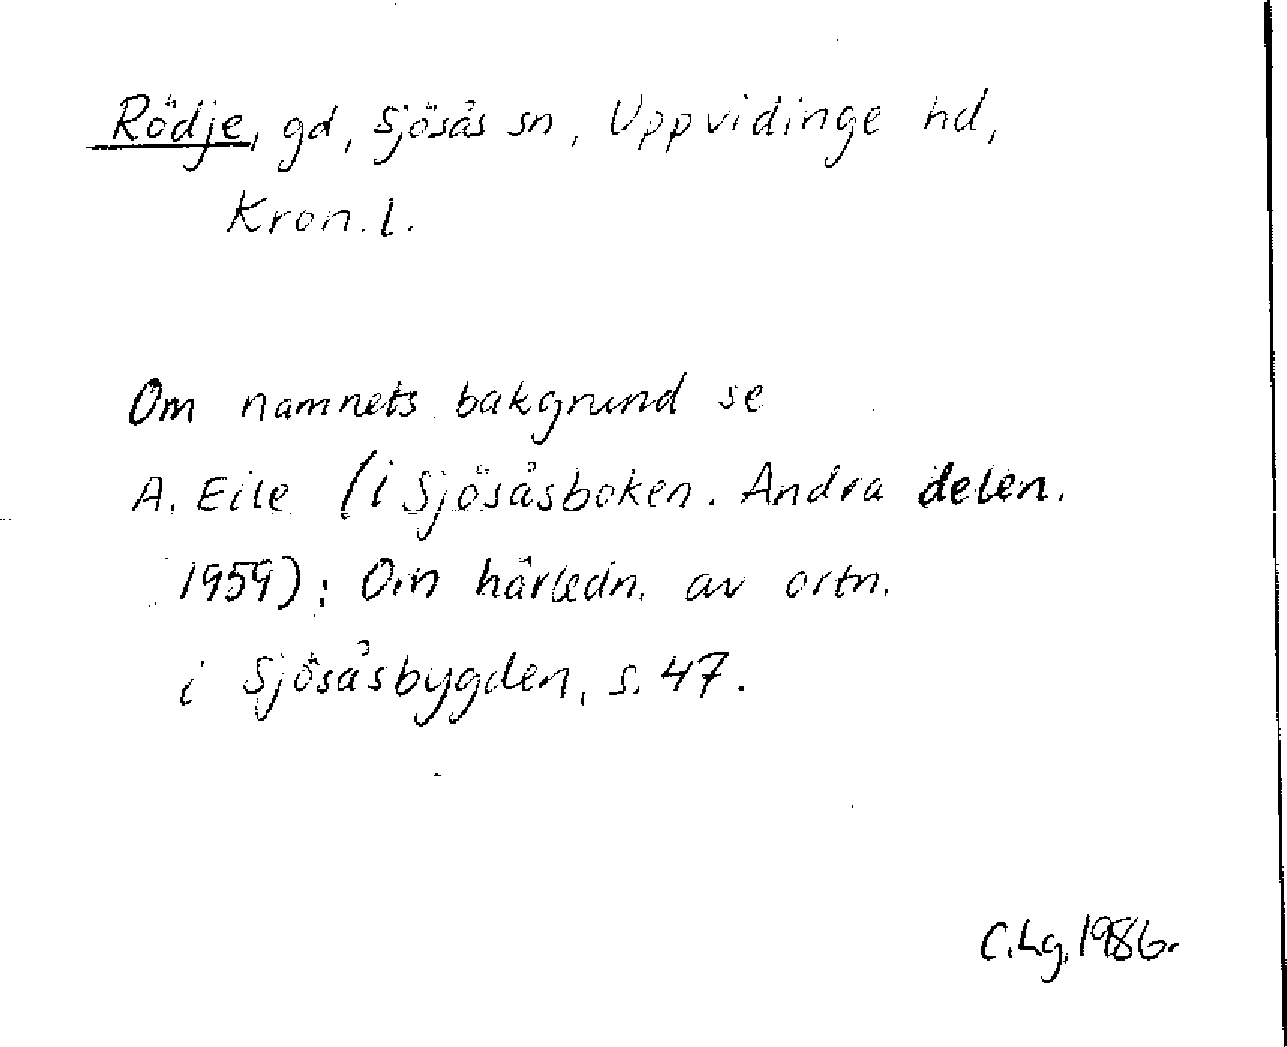 Rödje, gd, Sjösås sn, Uppvidinge hd,
Kron. l.
Om namnets bakgrund se
A. Eile (i Sjösåsboken. Andra delen.
1959): Om härledn. av ortn.
i Sjösåsbygden, s. 47.
C. Lg. 1986.